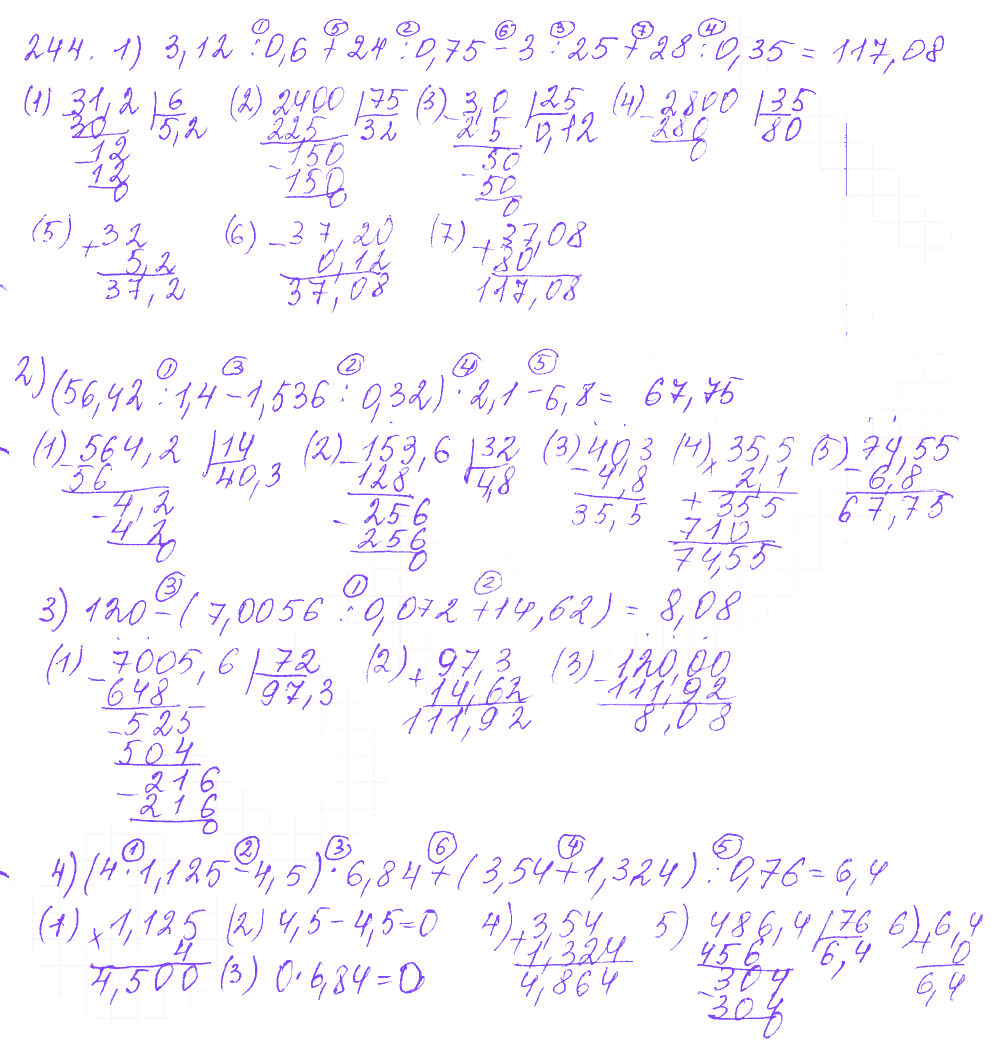 244. 1) 3,12 : 0,6 + 24 : 0,75 - 3 : 25 + 28 : 0,35 = 117,08
① ⑤ ② ⑥ ③ ⑦ ④
(1) 31,2 | 6 (2) - 2400 | 75 (3) - 3,0 | 25 (4) - 2800 | 35
30 5,2 225 32 2 5 0,12 280 80
-12 -150 50 0
12 150 - 50
0 0 0
(5) + 32 (6) - 37,20 (7) + 37,08
5,2 0,12 80
37,2 37,08 117,08
① ③ ② ④ ⑤
2) (56,42 : 1,4 - 1,536 : 0,32) · 2,1 - 6,8 = 67,75
(1) - 564,2 | 14 (2) - 153,6 | 32 (3) 40,3 (4) × 35,5 (5) - 74,55
56 40,3 128 4,8 - 4,8 2,1 6,8
- 4,2 - 256 35,5 + 355 67,75
4 2 256 710
0 0 74,55
③ ① ②
3) 120 - (7,0056 : 0,072 + 14,62) = 8,08
(1) - 7005,6 | 72 (2) + 97,3 (3) - 120,00
648 97,3 14,62 111,92
- 525 111,92 8,08
504
- 216
216
0
① ② ③ ⑥ ④ ⑤
4) (4 · 1,125 - 4,5) · 6,84 + (3,54 + 1,324) : 0,76 = 6,4
(1) × 1,125 (2) 4,5 - 4,5 = 0 4) + 3,54 5) 486,4 | 76 6) + 6,4
4 1,324 456 6,4 0
4,500 (3) 0 · 6,84 = 0 4,864 - 304 6,4
304
0